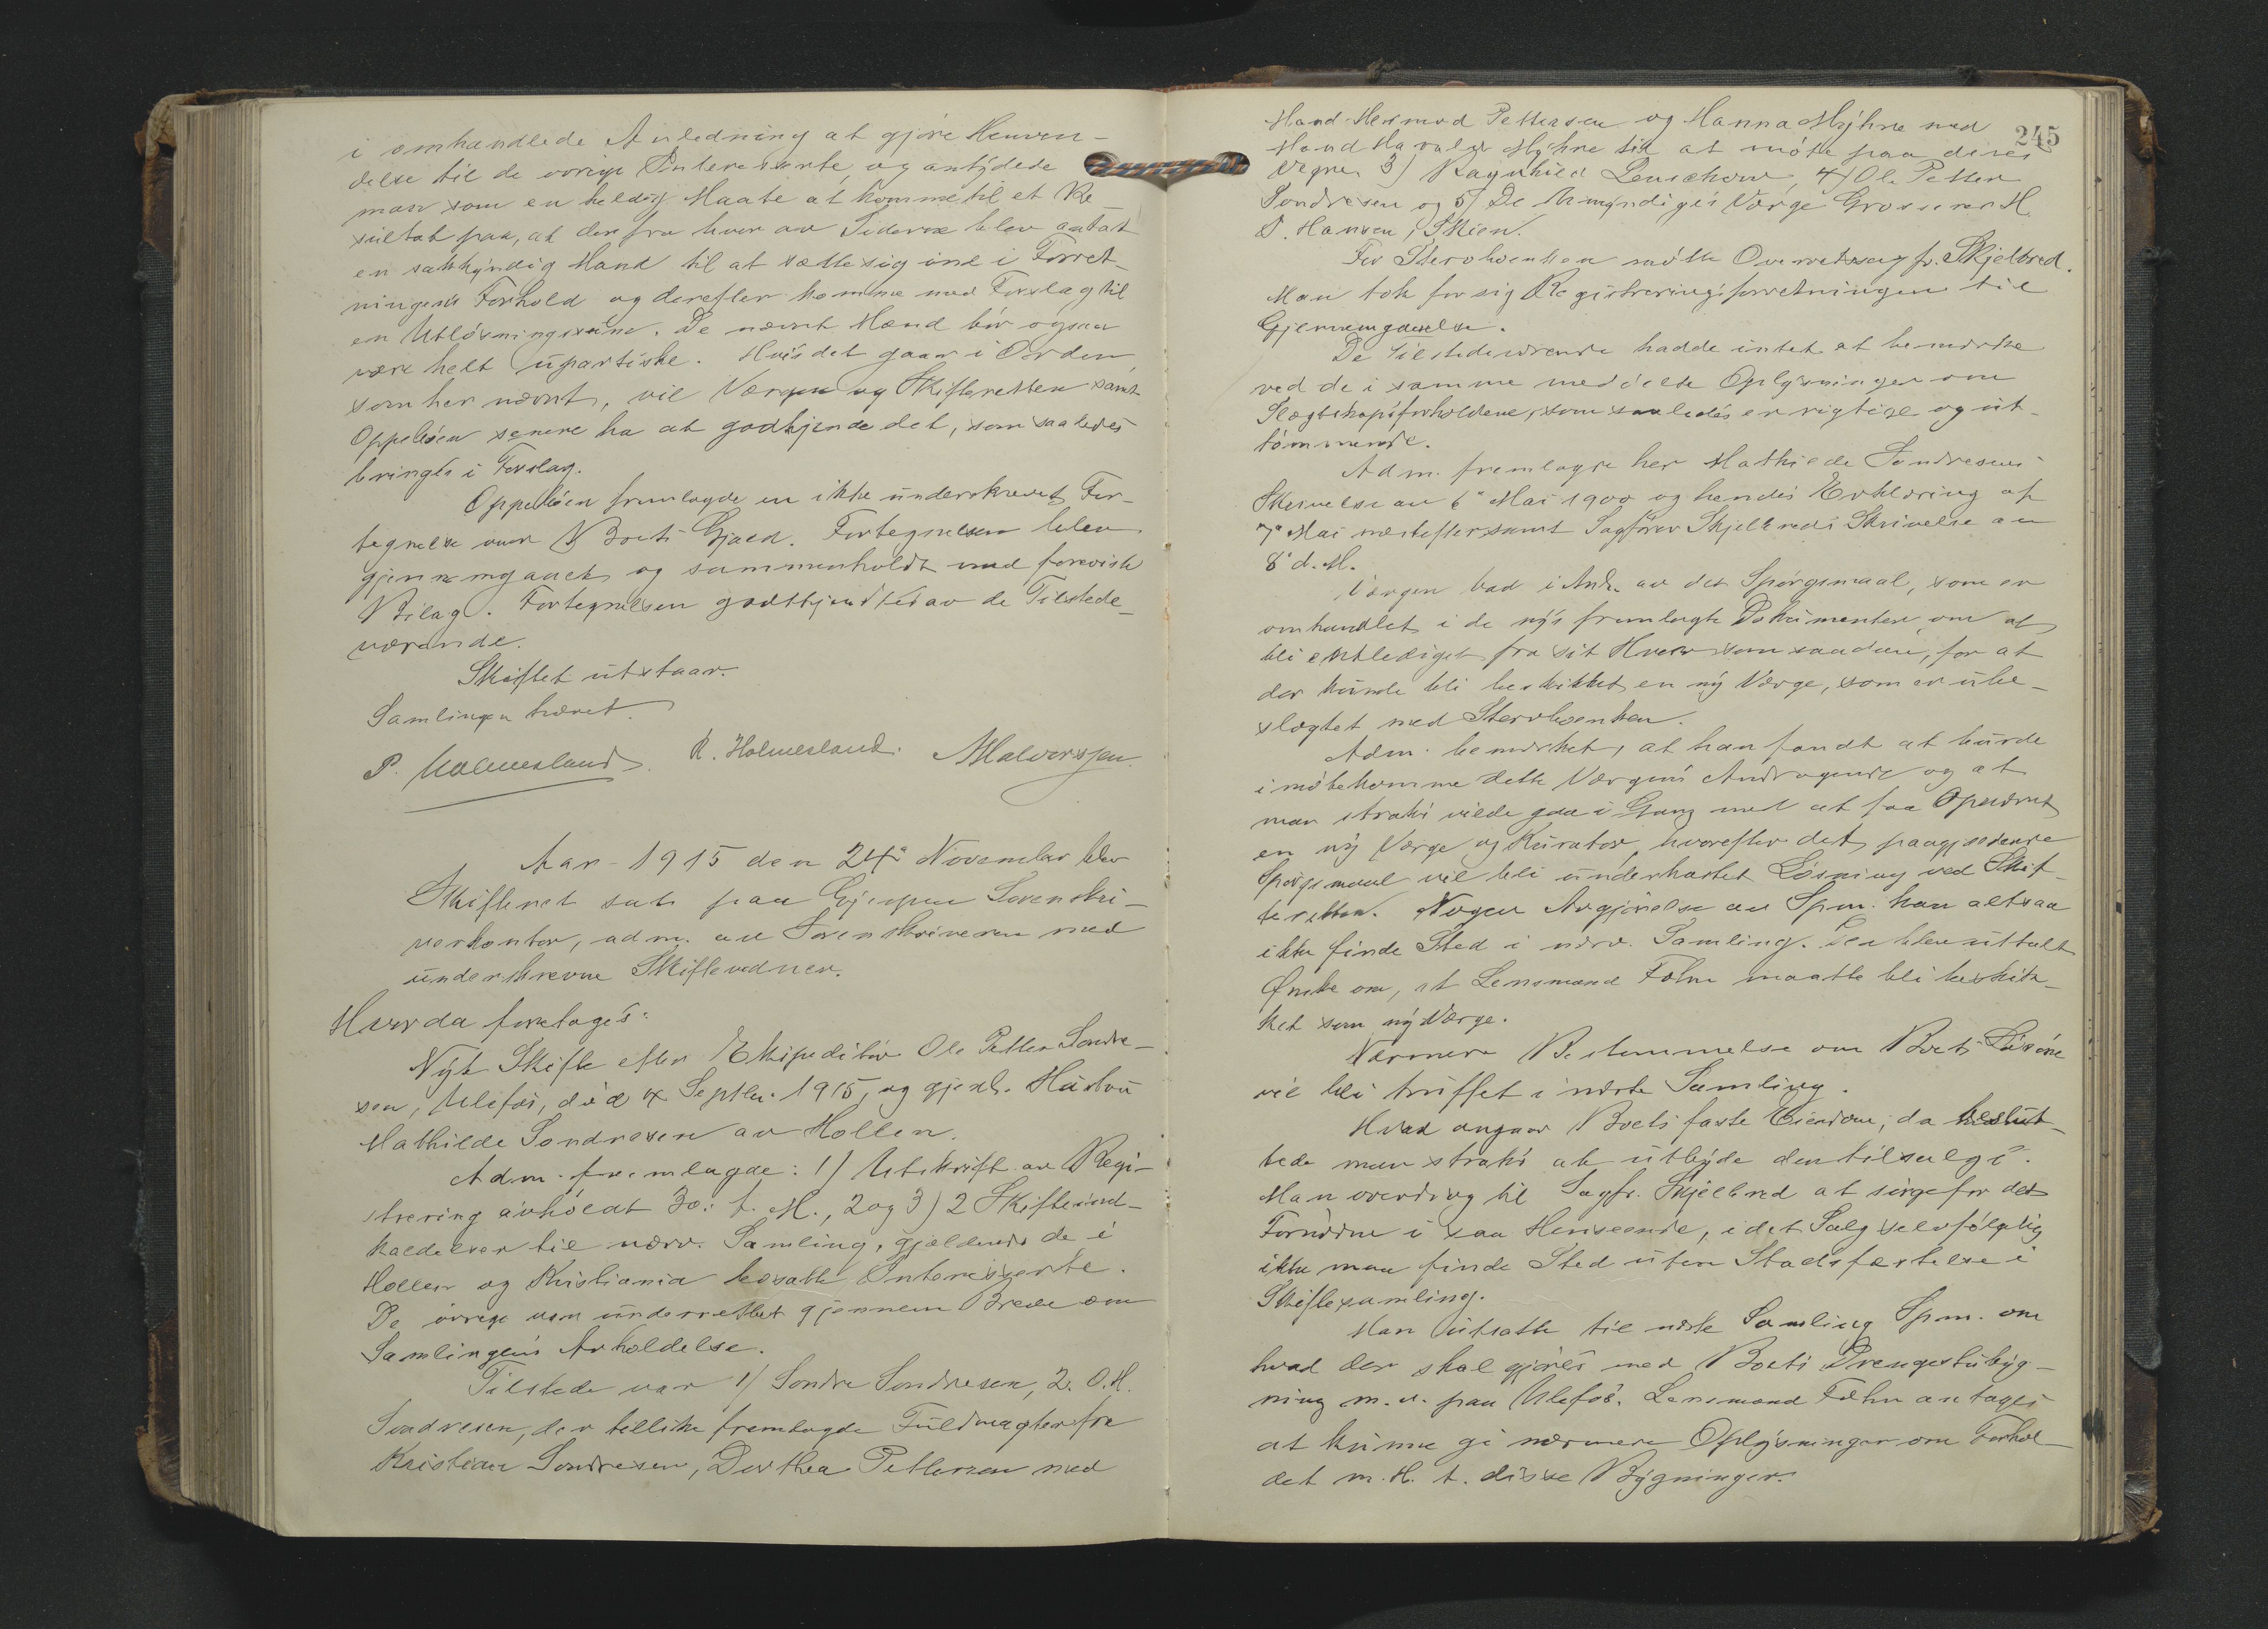 i omhandlede Anledning at gjøre Henven-
delse til de øvrige Interesserte og antydede
man som en heldig Maate at komme til et Re-
sultat paa, at der fra hver av Siderne blev antat
en sakkyndig Mand til at sætte sig ind i Forret-
ningens Forhold og derefter komme med Forslag til
en Utløsningssum. De nævnte Mænd bør ogsaa
være helt upartiske. Hvis det gaar i Orden
som her nævnt, vil Værgen og Skifteretten samt
Oppebøen senere ha at godkjende det, som saaledes
bringes i Forslag.
Oppebøen fremlagde en ikke underskrevet For-
tegnelse over Boets Gjæld. Fortegnelsen blev
gjennemgaaet og sammenholdt med foreviste
Bilag. Fortegnelsen godkjendtes av de Tilstede-
værende.
Skiftet utstaar.
Samlingen hævet.
P. Holmesland. R. Holmesland. A Halvorsen.
Aar 1915 den 24de November blev
Skifteret sat paa Gjerpen Sorenskri-
verkontor, adm. av Sorenskriveren med
underskrevne Skiftevidner.
Hvorda foretages:
Nyt Skifte efter Ekspeditør Ole Petter Sondre-
sen, Ulefos, død 4 Septbr. 1915, og gjenl. Hustru
Mathilde Sondresen av Hollen.
Adm. fremlagde: 1) Utskrift av Regi-
strering avholdt 30. f. M., 2 og 3) 2 Skifteind-
kaldelser til nærv. Samling, gjældende de i
Hollen og Kristiania bosatte Interesserte.
De øvrige var underrettet gjennem Breve om
Samlingens Avholdelse.
Tilstede var 1) Sondre Sondresen, 2. O. H.
Sondresen, der tillike fremlagde Fuldmagter fra
Kristian Sondresen, Dorthea Pettersen med
245
Mand Hermod Pettersen og Hanna Myhre med
Mand Harald Myhre til at møte paa deres
Vegne. 3) Ragnhild Leuschow, 4) Ole Petter
Sondresen og 5) De Umyndiges Værge Grosserer H.
P. Hansen, Skien.
For Stervboenken møtte Overretssagf. Skjelbred.
Man tok for sig Registreringsforretningen til
Gjennemgaaelse.
De Tilstedeværende hadde intet at bemærke
ved de i samme meddelte Oplysninger om
Slægtskapsforholdene, som saaledes er rigtige og ut-
tømmende.
Adm. fremlagde her Mathilde Sondresens
Skrivelse av 6te Mai 1900 og hendes Erklæring af
7de Mai næstefter samt Sagfører Skjelbreds Skrivelse av
8de d. M.
Værgen bad i Anl. av det Spørgsmaal, som er
omhandlet i de nys fremlagte Dokumenter, om at
bli entlediget fra sit Hverv som saadan, for at
der kunde bli beskikket en ny Værge, som er ube-
slægtet med Stervboenken.
Adm. bemærket, at han fandt at burde
imøtekomme dette Værgens Andragende og at
man straks vilde gaa i Gang med at faa Opnævnt
en ny Værge og Kurator, hvorefter det paagjældende
Spørgsmaal vil bli underkastet Løsning ved Skif-
teretten. Nogen Avgjørelse av Spm. kan altsaa
ikke finde Sted i nærv. Samling. Der blev uttalt
Ønske om, at Lensmand Folm maatte bli beskik-
ket som ny Værge.
Nærmere Bestemmelse om Boets Løsøre
vil bli truffet i næste Samling.
Hvad angaar Boets faste Eiendom, da beslut-
tede man straks at utbyde den til salgs.
Man overdrog til Sagfr. Skjelbred at sørge for det
Fornødne i saa Henseende, idet Salg selvfølgelig
ikke maa finde Sted uten Stadsfæstelse i
Skiftesamling.
Man utsatte til næste Samling Spm. om
hvad der skal gjøres med Boets Drengestubyg-
ning m. v. paa Ulefos. Lensmand Folm antages
at kunne gi nærmere Oplysninger om Forhol-
det m. H. t. disse Bygninger.